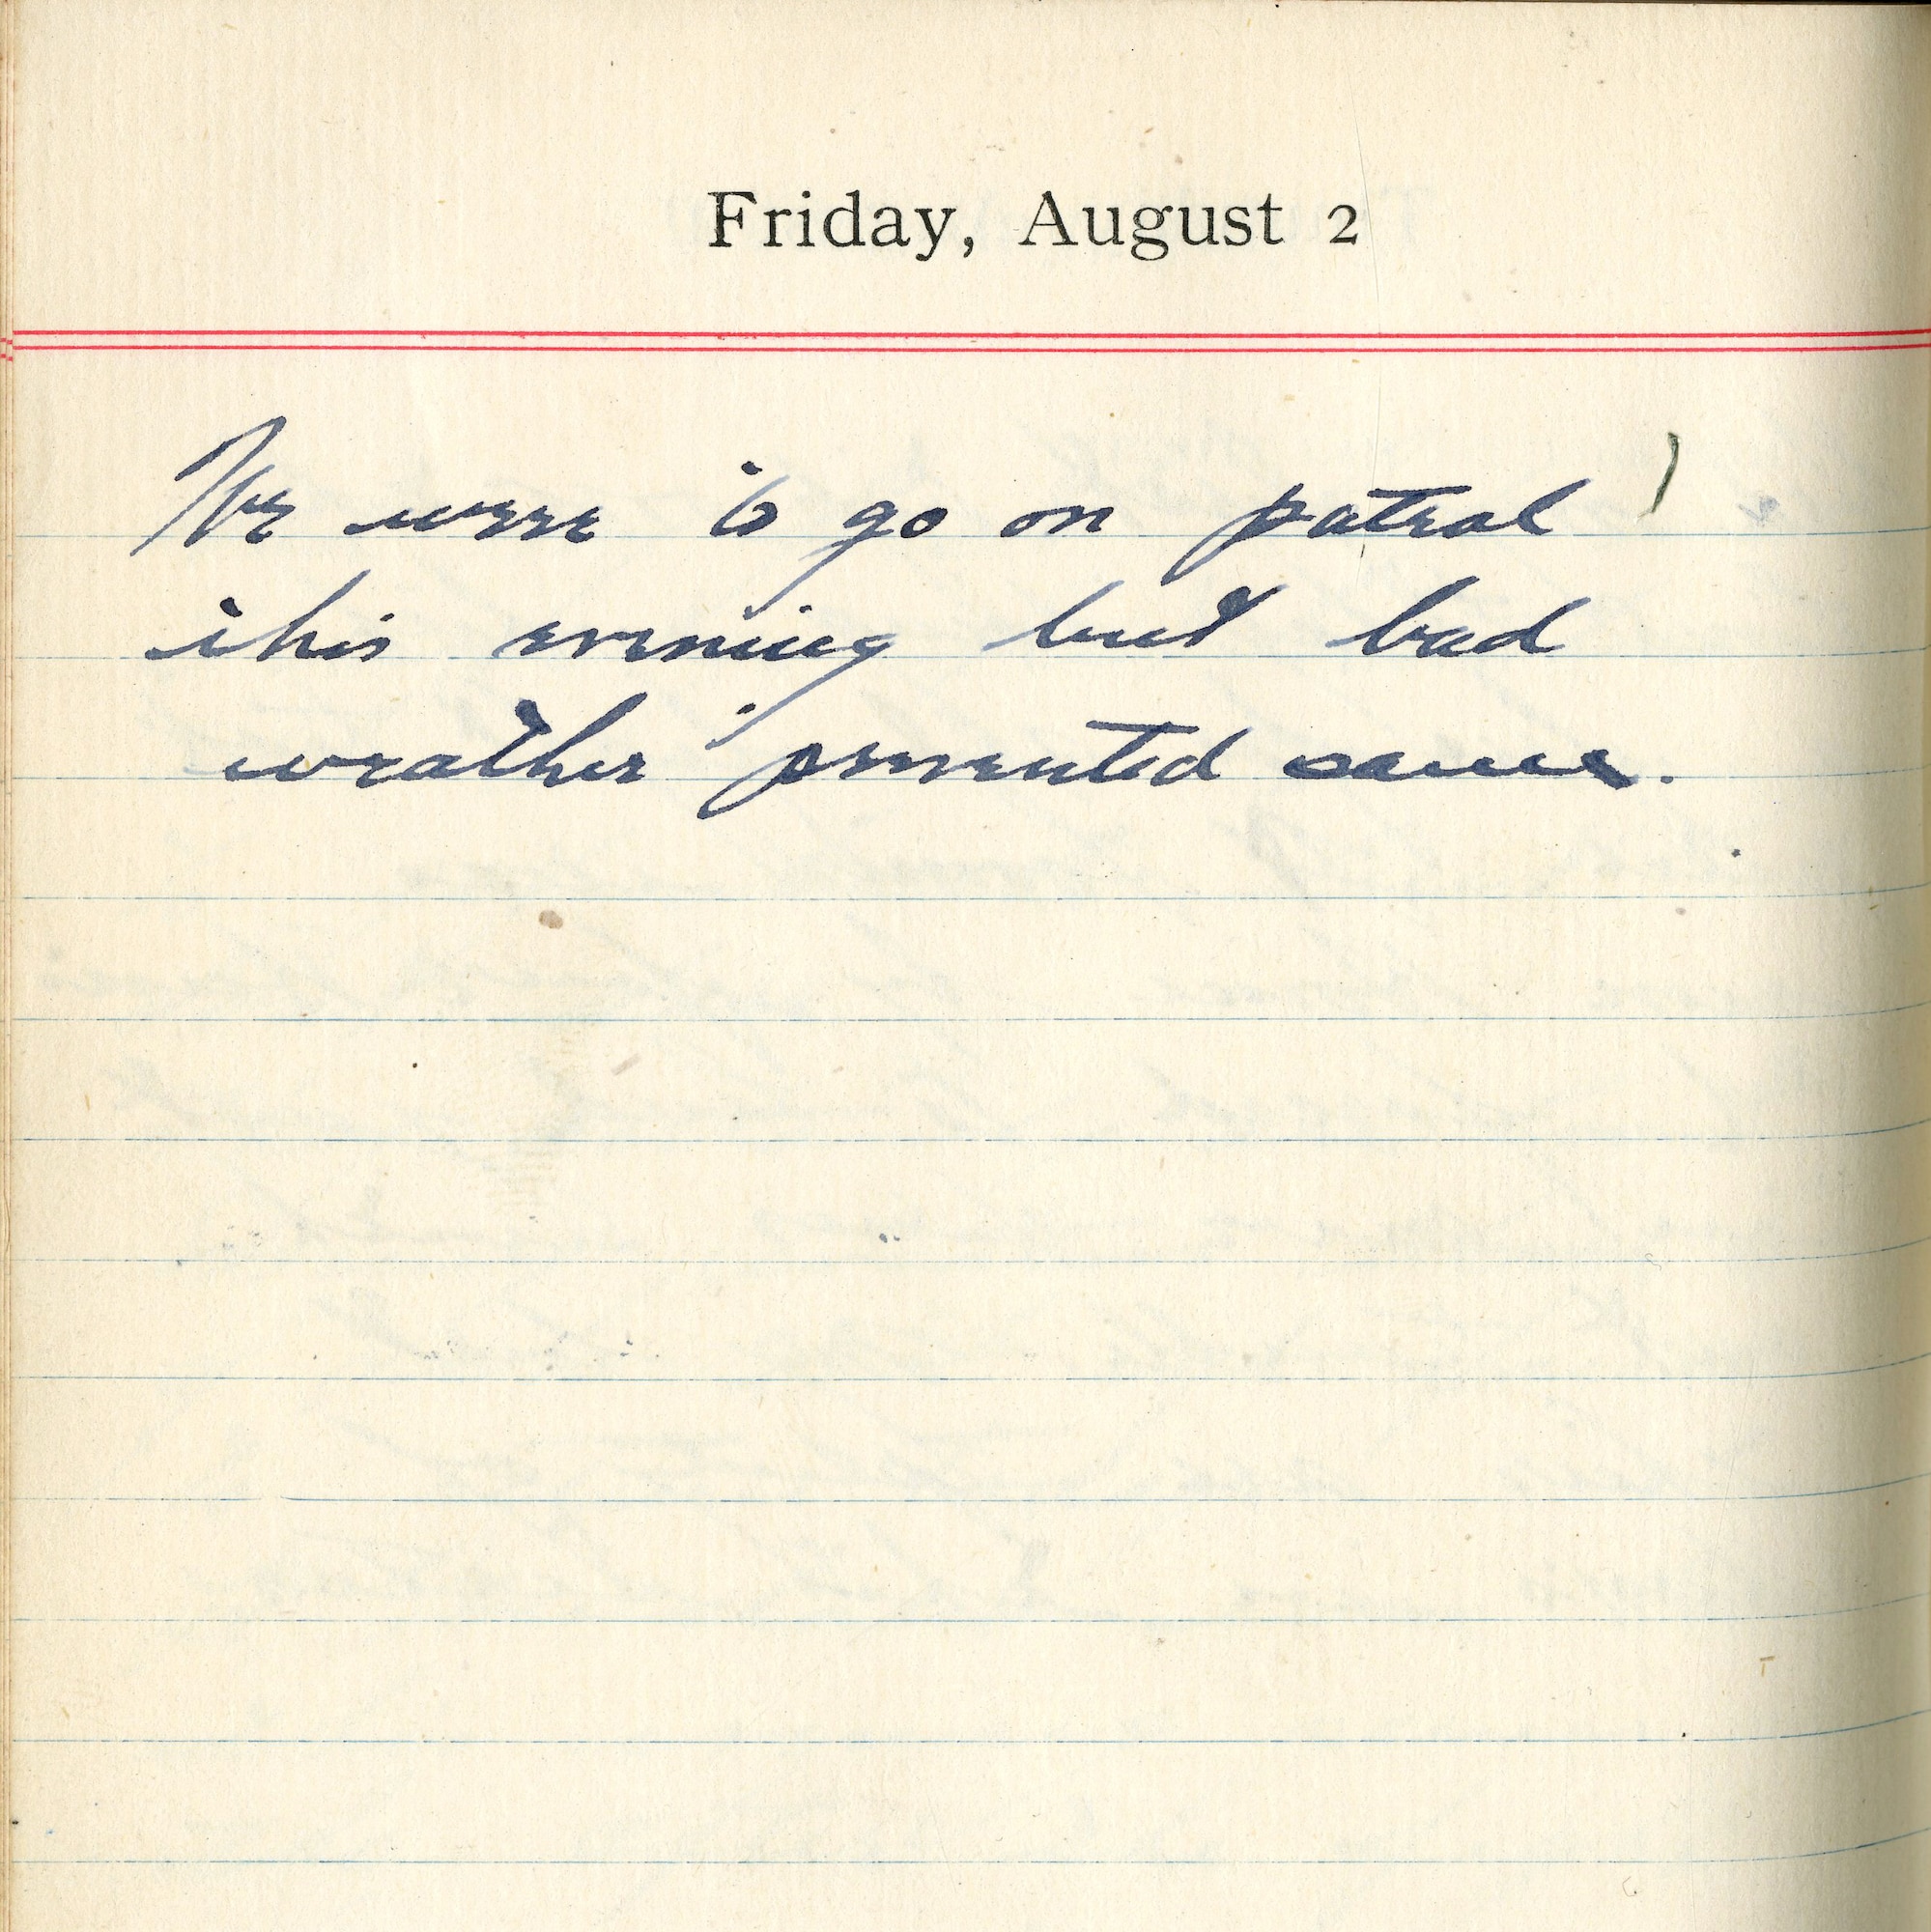 Friday, August 2
We were to go on patrol
this evening but bad
weather prevented same.